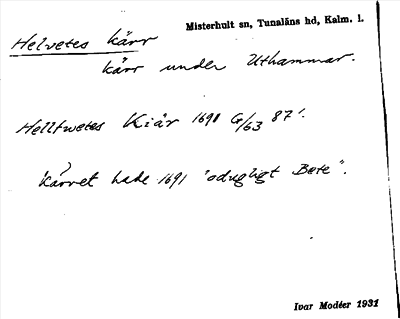 Misterhult sn, Tunaläns hd, Kalm. l.
Helvetes kärr
kärr under Uthammar.
Hellfwetes Kiär 1691 G/63 87'.
Kärret hade 1691 "odugligt Bete".
Ivar Modéer 1931